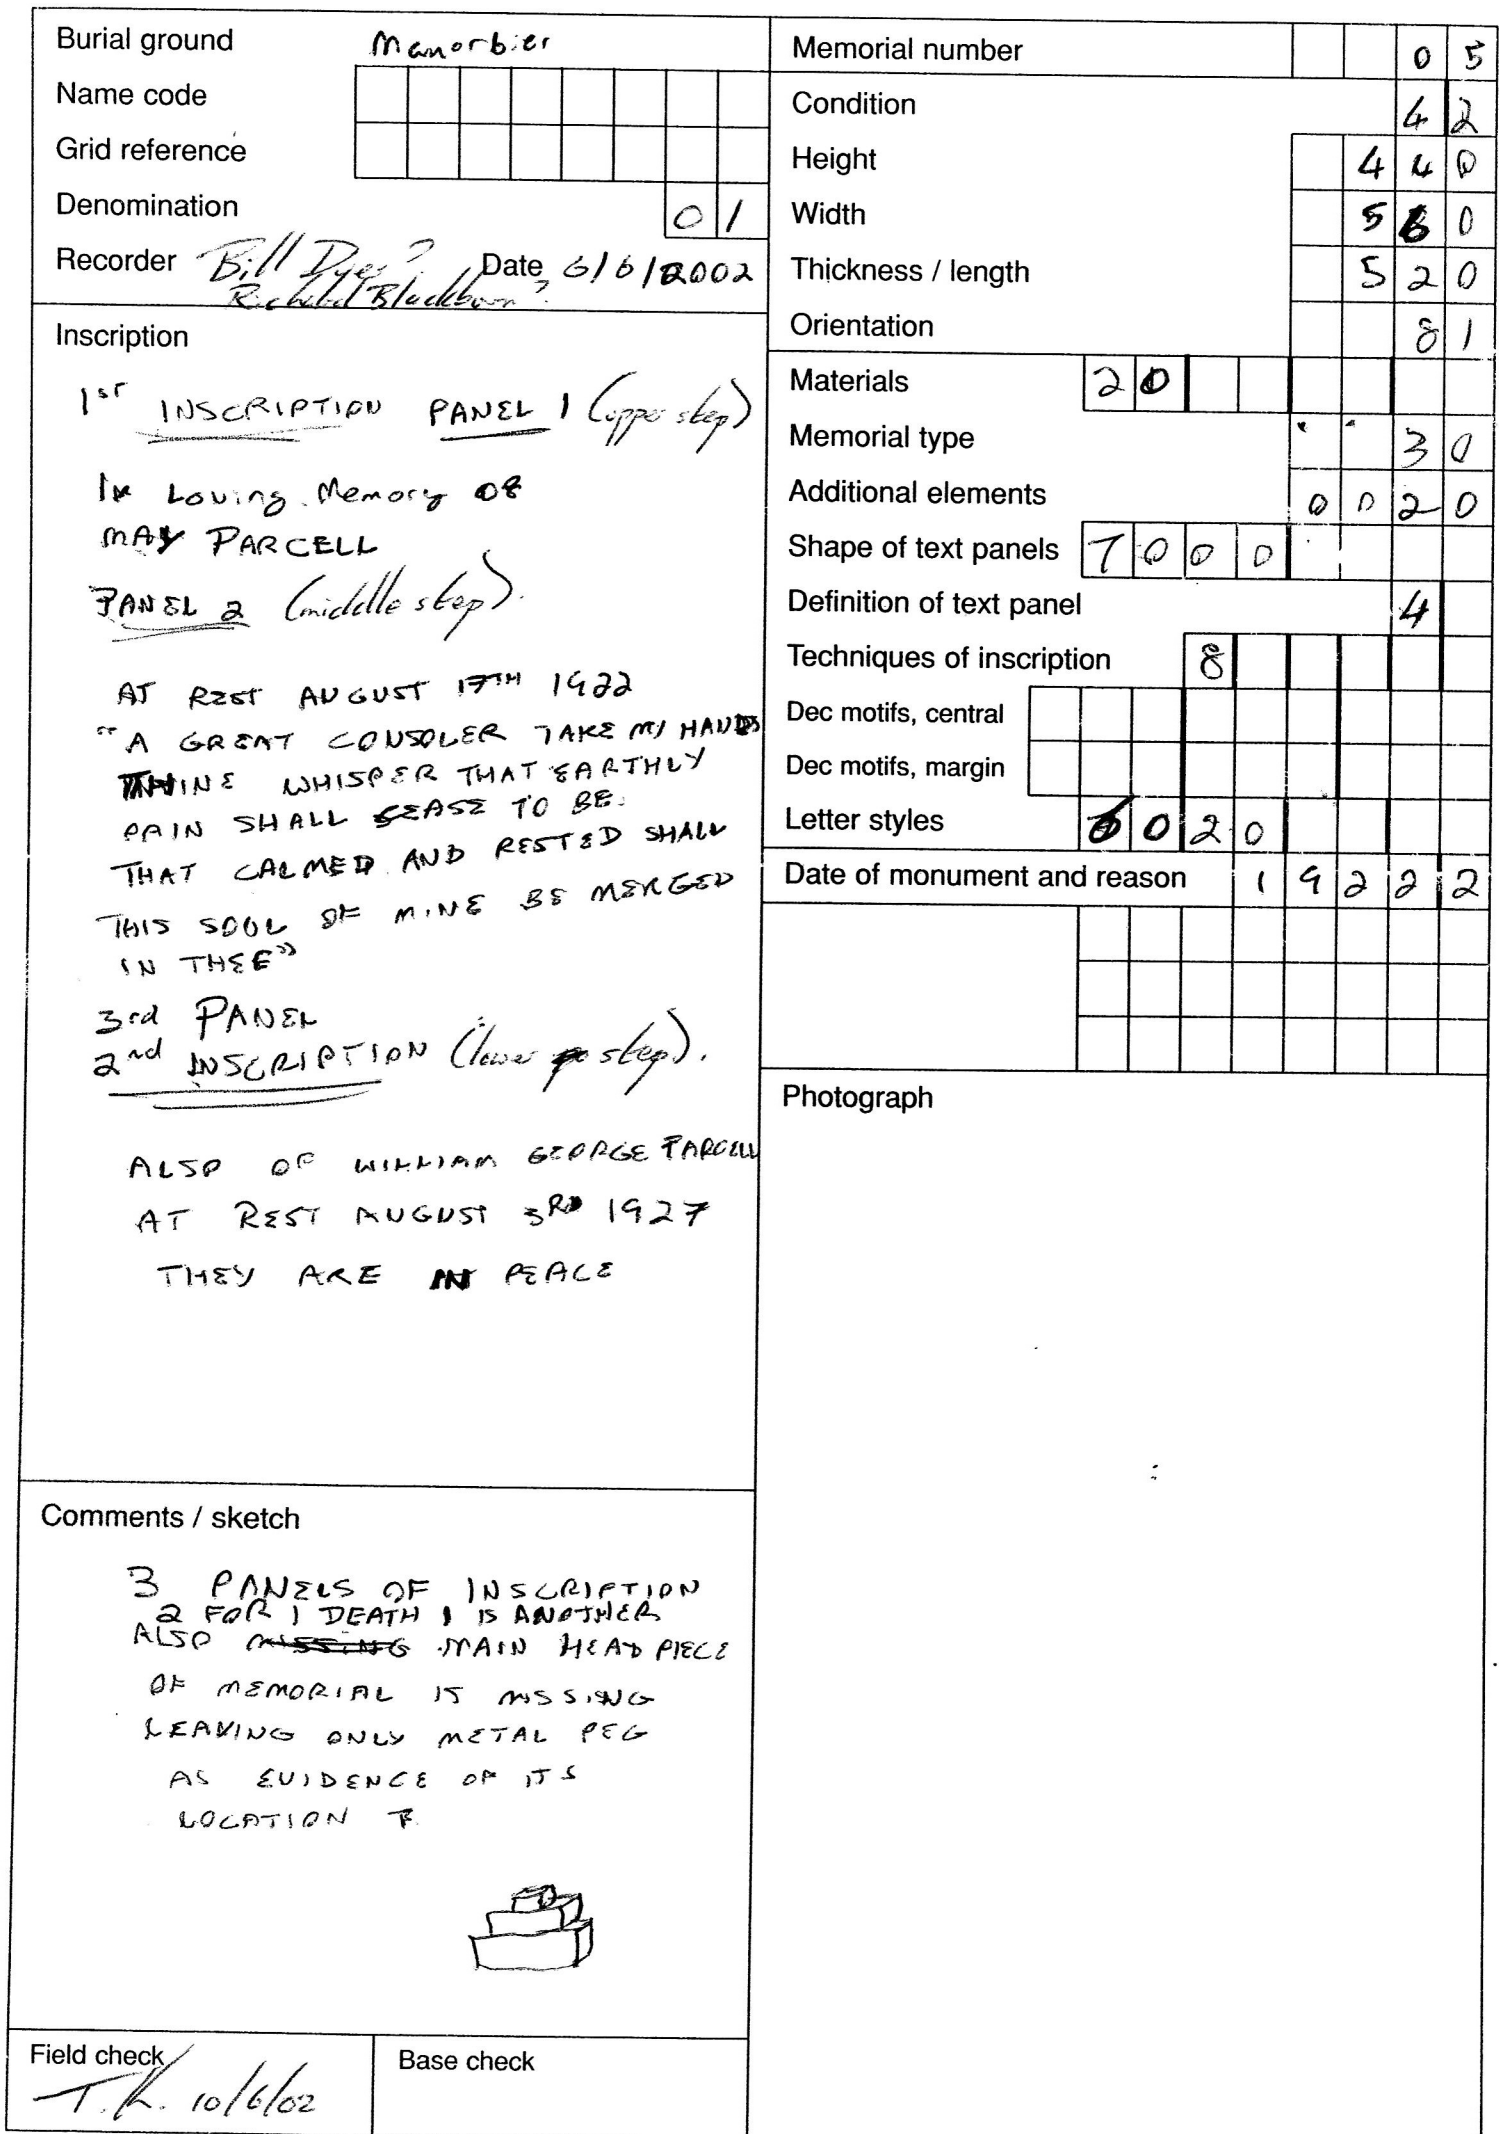 Burial ground Manorbier
Name code
Grid reference
Denomination 01
Recorder Bill Dyer? Date 6/6/2002
Richard Blackburn?
Inscription
1st INSCRIPTION PANEL 1 (upper step)
In Loving Memory of
MAY PARCELL
PANEL 2 (middle step).
AT REST AUGUST 17TH 1922
"A GREAT CONSOLER TAKE MY HANDS
THINE WHISPER THAT EARTHLY
PAIN SHALL CEASE TO BE.
THAT CALMED AND RESTED SHALL
THIS SOUL OF MINE BE MERGED
IN THEE"
3rd PANEL
2nd INSCRIPTION (lower step).
ALSO OF WILLIAM GEORGE PARCELL
AT REST AUGUST 3RD 1927
THEY ARE IN PEACE
Comments / sketch
3 PANELS OF INSCRIPTION
2 FOR 1 DEATH 1 IS ANOTHER
ALSO MISSING MAIN HEAD PIECE
OF MEMORIAL IS MISSING
LEAVING ONLY METAL PEG
AS EVIDENCE OF ITS
LOCATION
Field check
T.K. 10/6/02
Base check
Memorial number 05
Condition 42
Height 440
Width 560
Thickness / length 520
Orientation 81
Materials 20
Memorial type 30
Additional elements 0020
Shape of text panels 7000
Definition of text panel 4
Techniques of inscription 8
Dec motifs, central
Dec motifs, margin
Letter styles 6020
Date of monument and reason 19222
Photograph